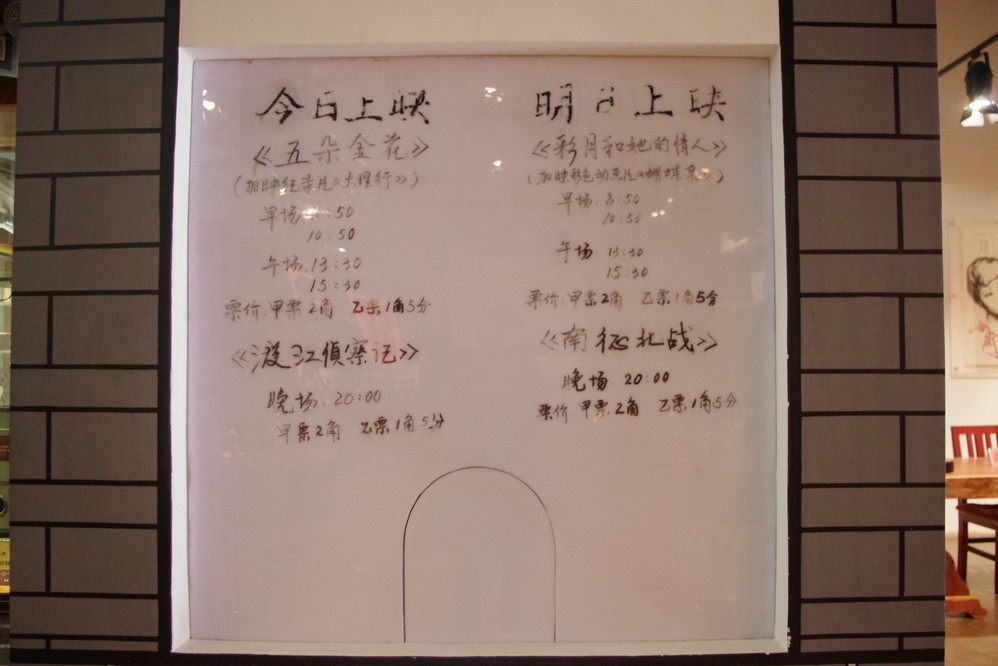 今日上映
《五朵金花》
(加映纪录片《大理行》)
早场 8:50
10:50
午场 13:30
15:30
票价:甲票2角 乙票1角5分
《渡江侦察记》
晚场 20:00
甲票2角 乙票1角5分
明日上映
《彩月和她的情人》
(加映彩色动画片《蝴蝶泉》)
早场 8:50
10:50
午场 13:30
15:30
票价:甲票2角 乙票1角5分
《南征北战》
晚场 20:00
票价 甲票2角 乙票1角5分